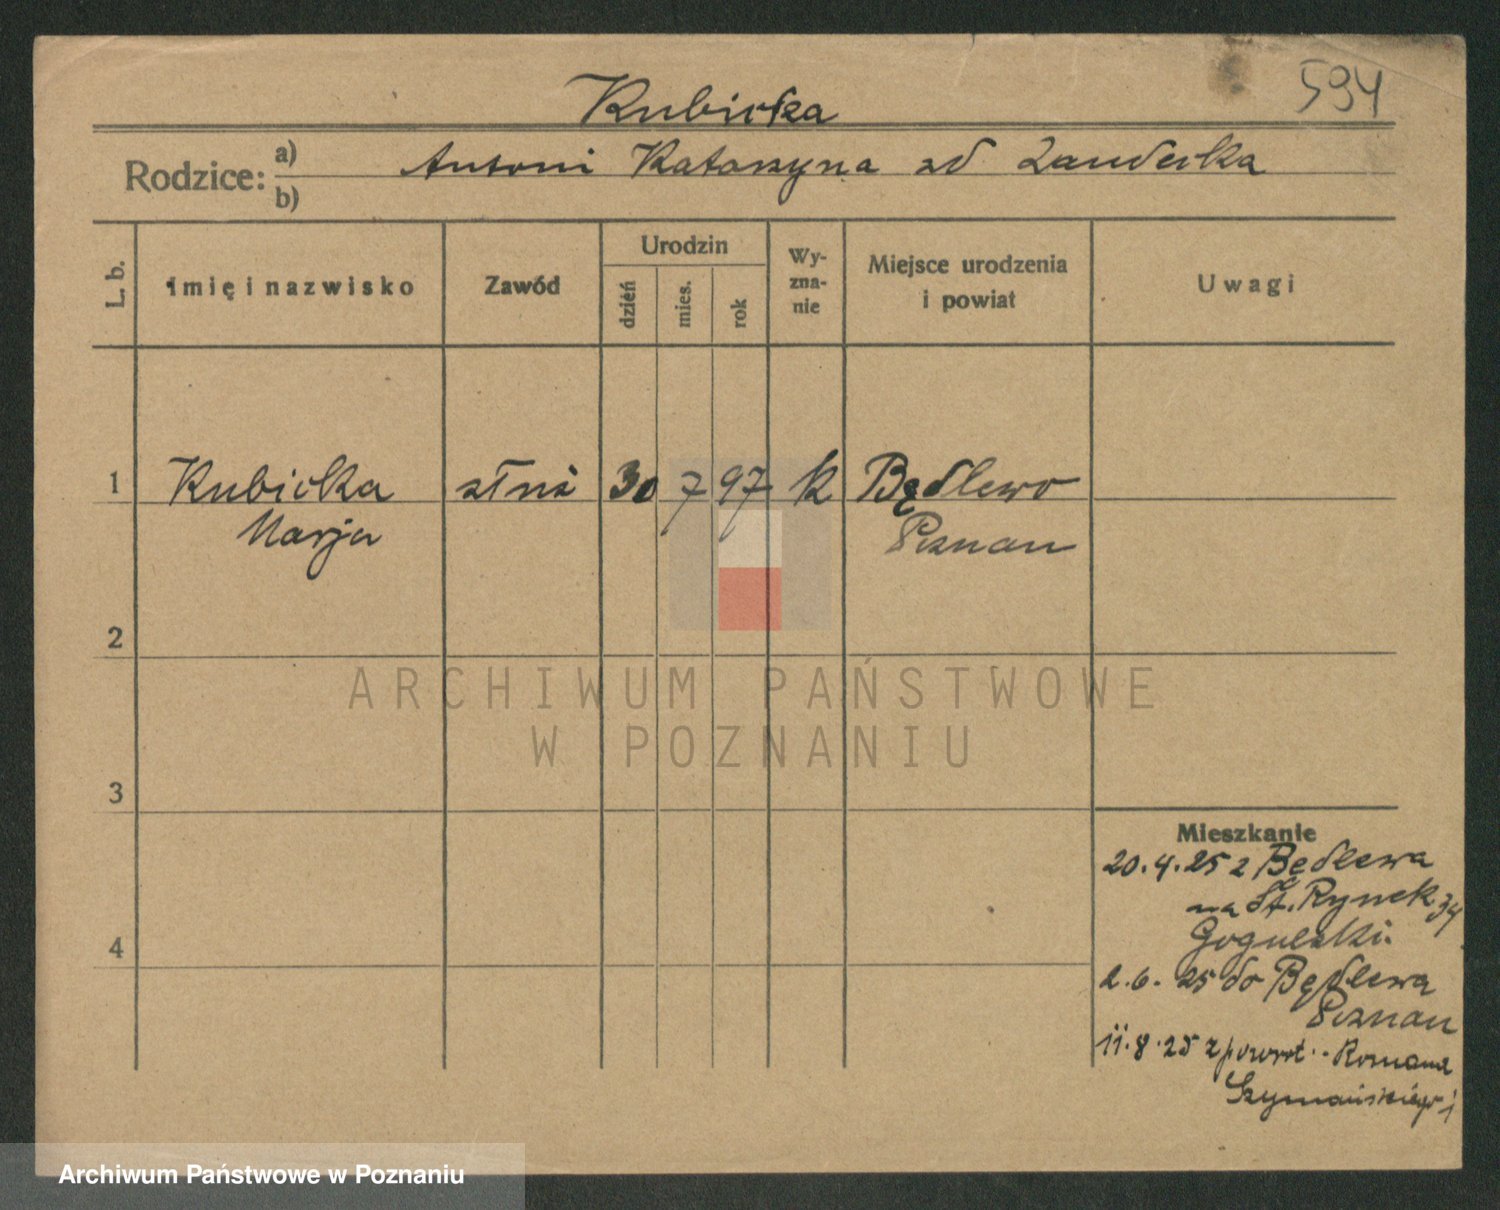 594
Kubicka
Rodzice: a) Antoni Katarzyna zd
b)
L. b. Imię i nazwisko Zawód Urodzin dzień mies. rok Wyznanie Miejsce urodzenia i powiat Uwagi
1 Kubicka służ 30 7 97 k Będlewo
Marja Poznan
2
3
4
Mieszkanie
20.4.25 z Będlewa
na St. Rynek 34
Gogulski.
2.6.25 do Będlewa
Poznan
11.8.25 z powrot. Romana
Szymańskiego 1
ARCHIWUM PAŃSTWOWE
W POZNANIU
Archiwum Państwowe w Poznaniu